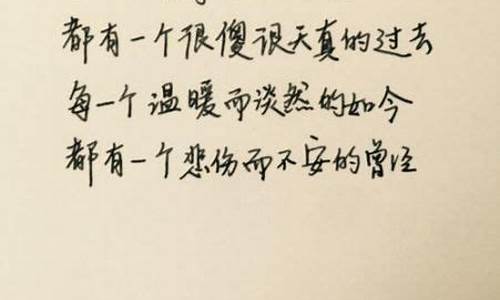 都有一个很傻很天真的过去
每一个温暖而谈然的如今
都有一个悲伤而不安的曾经